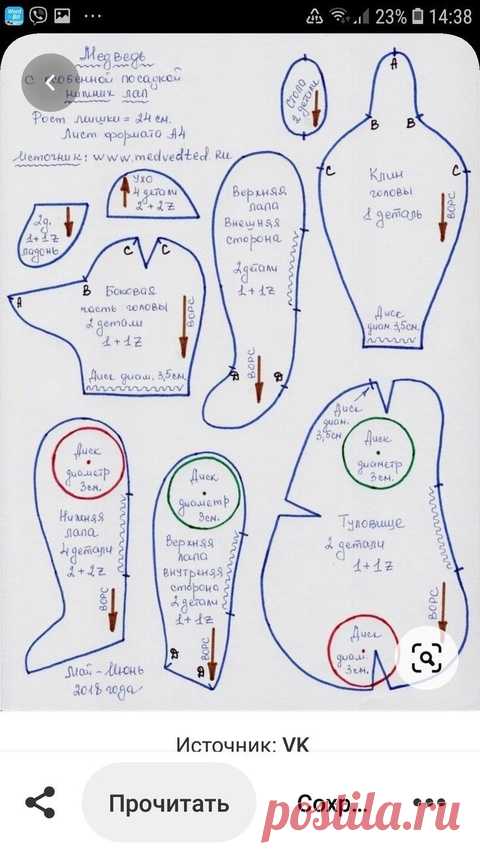 23% 14:38
Медведь
с особенной посадкой
нижних лап
Рост мишки = 24 см.
Лист формата А4
Источник: www.medvedted.ru
Стопа
2 детали
А
В В
С С
Клин
головы
1 деталь
ВОРС
Диск
диам. 3,5см.
Ухо
4 детали
2 + 2 Z
2д.
1+1Z
ладонь
Верхняя
лапа
Внешняя
сторона
2 детали
1 + 1 Z
ВОРС
Д Д
С С
А
В
Боковая
часть головы
2 детали
1 + 1 Z
ВОРС
Диск диам. 3,5см.
Диск
диаметр
3см.
Нижняя
лапа
4 детали
2 + 2 Z
ВОРС
Диск
диаметр
3см.
Верхняя
лапа
внутреняя
сторона
2 детали
1 + 1 Z
ВОРС
Д
Д
Диск
диам.
3,5см
Диск
диаметр
3см.
Туловище
2 детали
1 + 1 Z
ВОРС
Диск
диам.
3см.
Май - Июнь
2018 года
Источник: VK
Прочитать
Сохр...
postila.ru